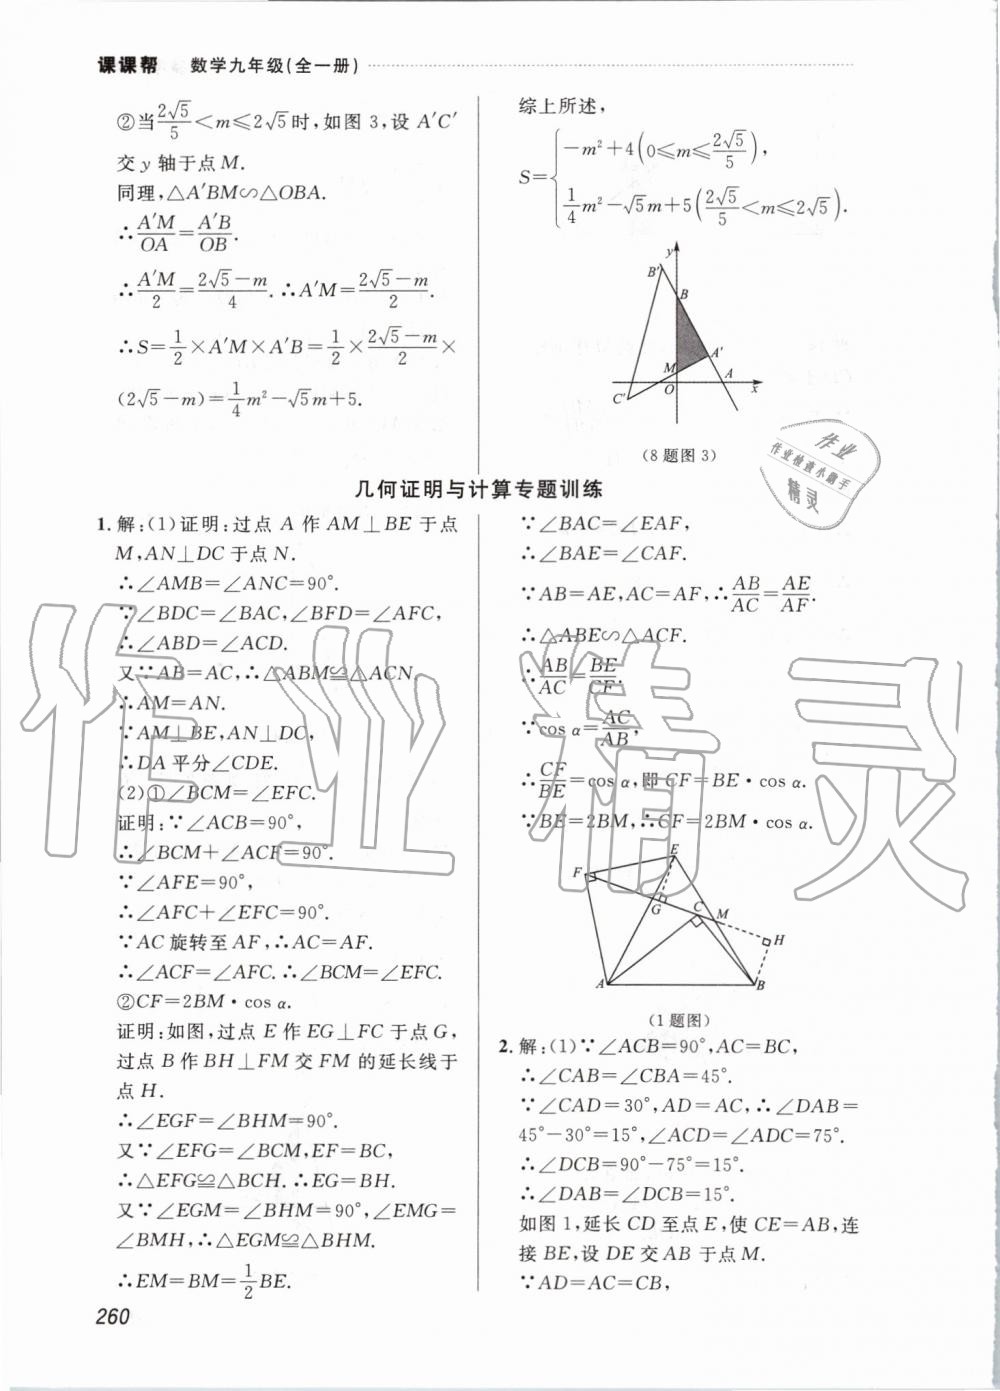 课课帮 数学九年级(全一册)
②当2√5/5<m≤2√5时,如图3,设 A′C′
交 y 轴于点 M.
同理,△A′BM∽△OBA.
∴A′M/OA=A′B/OB.
∴A′M/2=(2√5-m)/4.∴A′M=(2√5-m)/2.
∴S=1/2×A′M×A′B=1/2×(2√5-m)/2×
(2√5-m)=1/4m²-√5m+5.
综上所述,
S={-m²+4(0≤m≤2√5/5),
1/4m²-√5m+5(2√5/5<m≤2√5).
y
B′
B
A′
M
A
O
x
C′
(8题图3)
作业
作业检查小助手
精灵
几何证明与计算专题训练
1.解:(1)证明:过点 A 作 AM⊥BE 于点
M,AN⊥DC 于点 N.
∴∠AMB=∠ANC=90°.
∵∠BDC=∠BAC,∠BFD=∠AFC,
∴∠ABD=∠ACD.
又∵AB=AC,∴△ABM≌△ACN
∴AM=AN.
∵AM⊥BE,AN⊥DC,
∴DA 平分∠CDE.
(2)①∠BCM=∠EFC.
证明:∵∠ACB=90°,
∴∠BCM+∠ACF=90°.
∵∠AFE=90°,
∴∠AFC+∠EFC=90°.
∵AC 旋转至 AF,∴AC=AF.
∴∠ACF=∠AFC.∴∠BCM=∠EFC.
②CF=2BM·cos α.
证明:如图,过点 E 作 EG⊥FC 于点 G,
过点 B 作 BH⊥FM 交 FM 的延长线于
点 H.
∴∠EGF=∠BHM=90°.
又∵∠EFG=∠BCM,EF=BC,
∴△EFG≌△BCH.∴EG=BH.
又∵∠EGM=∠BHM=90°,∠EMG=
∠BMH,∴△EGM≌△BHM.
∴EM=BM=1/2BE.
∵∠BAC=∠EAF,
∴∠BAE=∠CAF.
∵AB=AE,AC=AF,∴AB/AC=AE/AF.
∴△ABE∽△ACF.
∴AB/AC=BE/CF.
∵cos α=AC/AB,
∴CF/BE=cos α,即 CF=BE·cos α.
∵BE=2BM,∴CF=2BM·cos α.
E
F
G
C
M
H
A
B
(1题图)
2.解:(1)∵∠ACB=90°,AC=BC,
∴∠CAB=∠CBA=45°.
∵∠CAD=30°,AD=AC,∴∠DAB=
45°-30°=15°,∠ACD=∠ADC=75°.
∴∠DCB=90°-75°=15°.
∴∠DAB=∠DCB=15°.
如图1,延长 CD 至点 E,使 CE=AB,连
接 BE,设 DE 交 AB 于点 M.
∵AD=AC=CB,
260
作业精灵